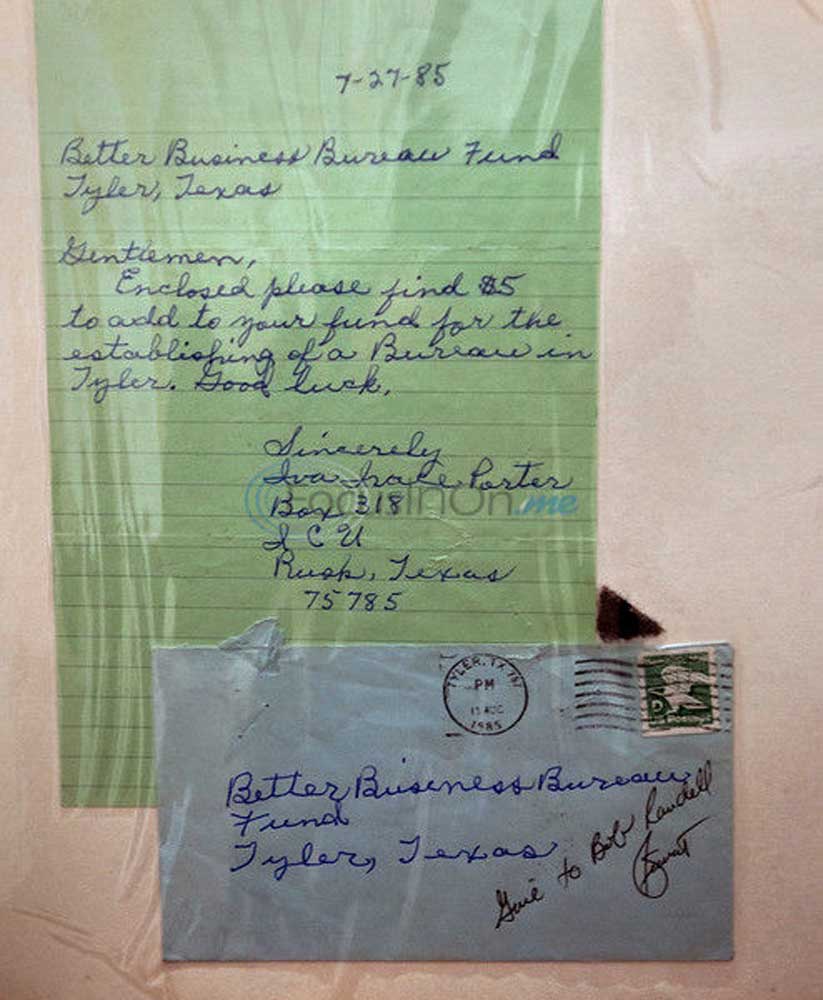 7-27-85
Better Business Bureau Fund
Tyler, Texas
Gentlemen,
Enclosed please find $5
to add to your fund for the
establishing of a Bureau in
Tyler. Good luck.
Sincerely
Iva Porter
Box 318
I C U
Rusk, Texas
75785
FocusInOn.me
TYLER, TX 757
PM
AUG
1985
Better Business Bureau
Fund
Tyler, Texas
Give to Bob Randell